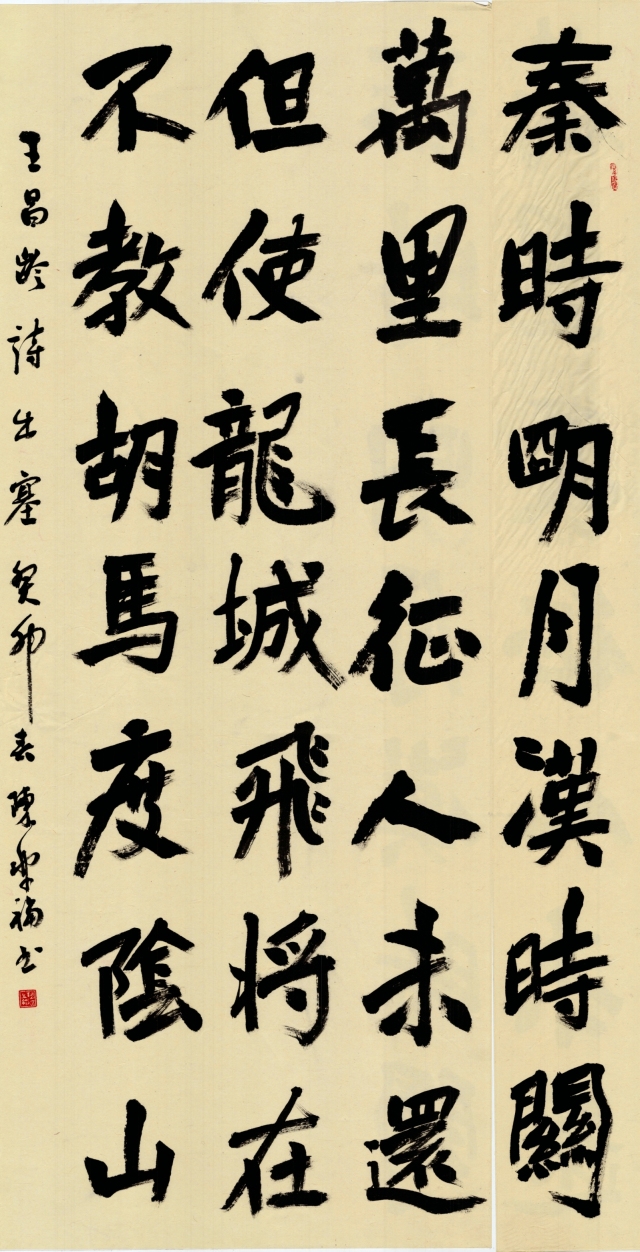 秦時明月漢時關
萬里長征人未還
但使龍城飛将在
不教胡馬度陰山
王昌龄詩出塞癸卯春陳樂福书